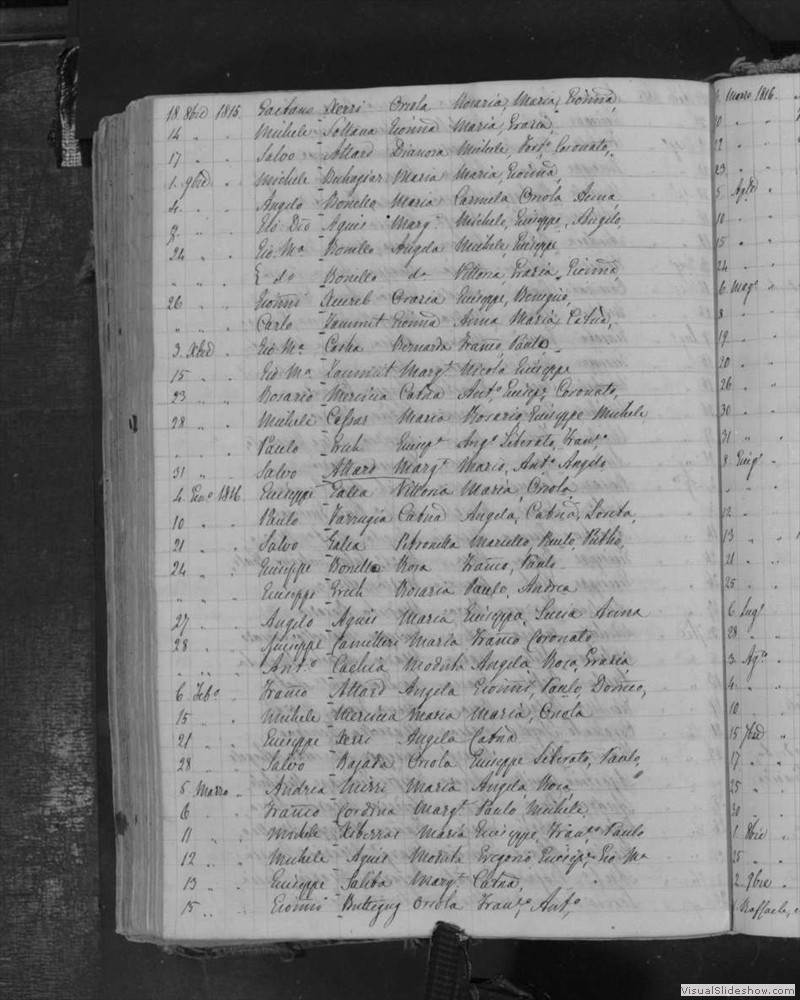 18 8bre 1815 Gaetano Xerri Orsola Rosaria, Maria, Gionna,
14 " " Michele Sultana Gionna Maria, Grazia,
17 " " Salvo Attard Dianora Michele, Coronato,
1. 9bre " Michele Buhagiar Maria Maria, Gionna,
4. " " Angelo Bonello Maria Carmela Orsola Anna,
" " Gio Dio Agius Marg. Michele, Giuseppe, Angelo,
24 " " Gio Ma. Bonello Angela Michele, Giuseppe
" " " E do Bonello da Vittoria, Grazia, Gionna,
26 " " Gionni Xuereb Grazia Giuseppe, Benigno,
" " " Carlo Zammit Gionna Anna Maria,
3. Xbre " Gio Ma. Casha Bernarda Franco, Paulo
15 " " Gio Ma. Zammit Margt. Nicola Giuseppe
23 " " Rosario Mercieca Catna Anto. Giusepe, Coronato,
28 " " Michele Cassar Maria Rosario, Giuseppe Michele
" " " Paulo Grech Giusepa. Ango. Liberato, Franco.
31 " " Salvo Attard Margt. Mario, Anto. Angelo
4. Geno. 1816. Giuseppe Galea Vittoria Maria Orsola,
10 " " Paulo Farrugia Catna Angela, Catna,
21 " " Salvo Galea Petronilla Marcello, Paulo, Publio,
24 " " Giuseppe Bonello Rosa Franco, Paulo
" " " Giuseppe Grech Rosaria Paulo, Andrea
27 " " Angelo Agius Maria Giuseppa, Lucia Anna
28 " " Giuseppe Camilleri Maria Franco Coronato
" " " Anto. Cachia Modesta Angela, Rosa, Grazia
6 Febo. " Franco Attard Angela Gionni, Paulo, Domco,
15 " " Michele Mercieca Maria Maria, Orsola
21 " " Giuseppe Xerri Angela Catna
28 " " Salvo Bajada Orsola Giuseppe Liberato, Paulo,
5 Marzo " Andrea Mizzi Maria Angela, Rosa,
6 " " Franco Cordina Margt. Paulo Michele,
11 " " Michele Xiberras Maria Giuseppe, Franco. Paulo
12 " " Michele Agius Modesta Gregorio Giuseppe, Gio Ma.
13 " " Giuseppe Saliba Margt. Catna,
15 " " Gionni Buttigieg Orsola Franco, Anto.
Marzo 1816.
10 " "
12 " "
23 " "
5 Aple "
10 "
15 "
24 "
6 Mago "
8 "
19 "
20 "
26 "
30 "
31 "
8 Giugo "
" "
12 "
13 "
21 "
25 "
6 Lugo
28 "
3 Ago.
4 "
10 "
15 7bre "
17 "
25 "
30 "
1. 8bre "
25 "
2. 9bre "
Raffaele,
VisualSlideshow.com